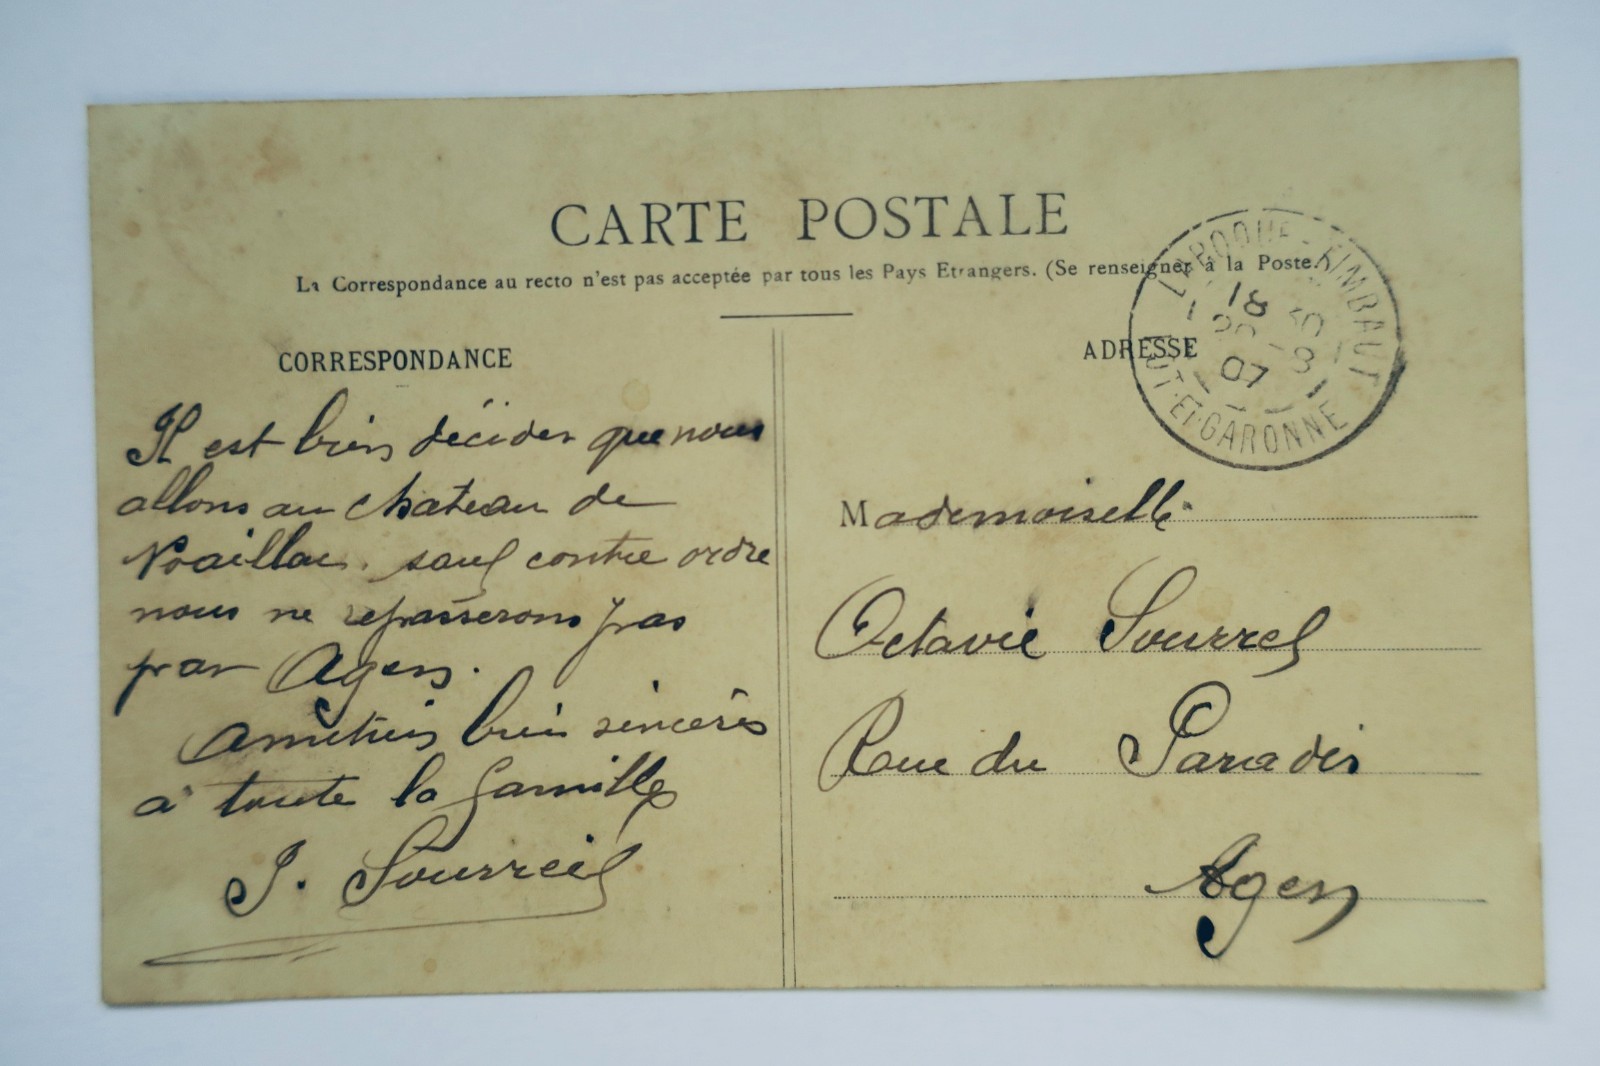 CARTE POSTALE
La Correspondance au recto n'est pas acceptée par tous les Pays Etrangers. (Se renseigner à la Poste.)
CORRESPONDANCE
Il est bien décider que nous
allons au chateau de
Noaillac. sauf contre ordre
nous ne repasserons pas
par Agen.
Amitiés bien sincères
à toute la famille
J. Sourreil
ADRESSE
LAROQUE-TIMBAUT
18 30
8
07
LOT-ET-GARONNE
Mademoiselle
Octavie Sourrel
Rue du Paradis
Agen